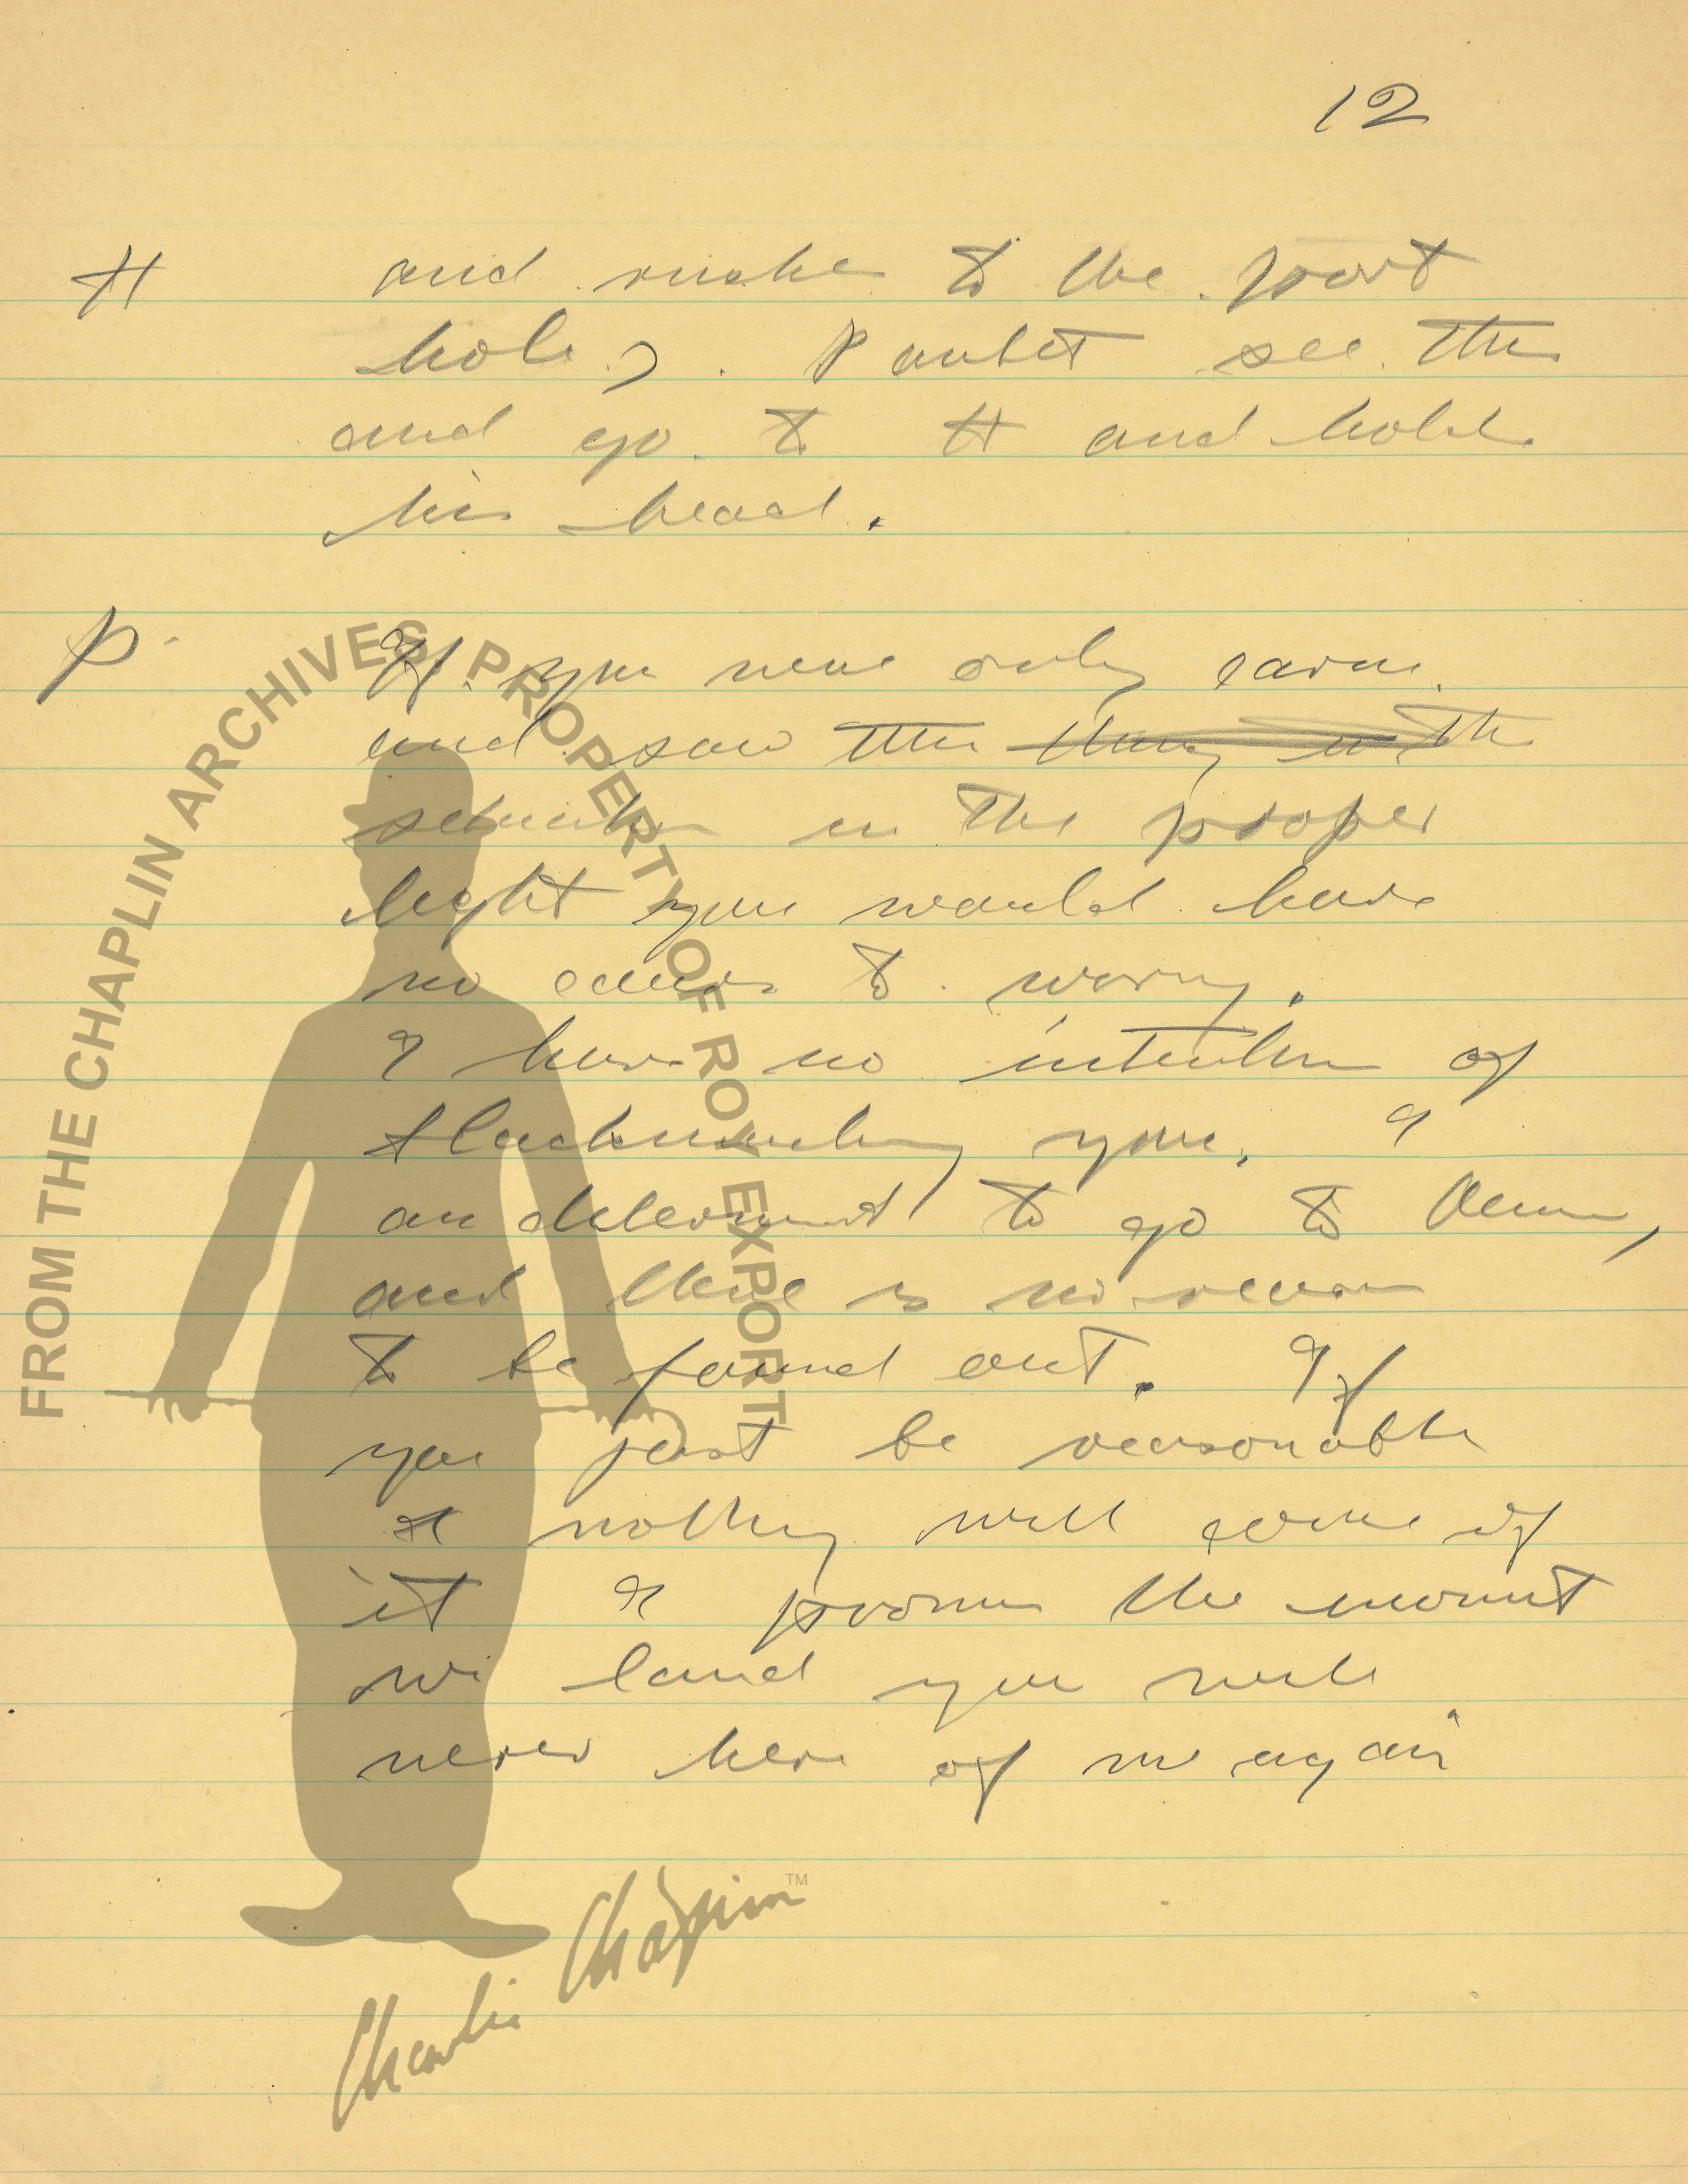 12
H and rushes to the port
hole). Paulet see this
and go to H and holds
his head.
P. If you were only calm
and saw this thing in the
situation in the proper
light you would have
no cause to worry.
I have no intention of
blackmailing you. I
am determined to go to
and there is no reason
to be found out. If
you just be reasonable
nothing will come of
it I promise the moment
we land you will
never here of me again
FROM THE CHAPLIN ARCHIVES PROPERTY OF ROY EXPORT
Charlie Chaplin™